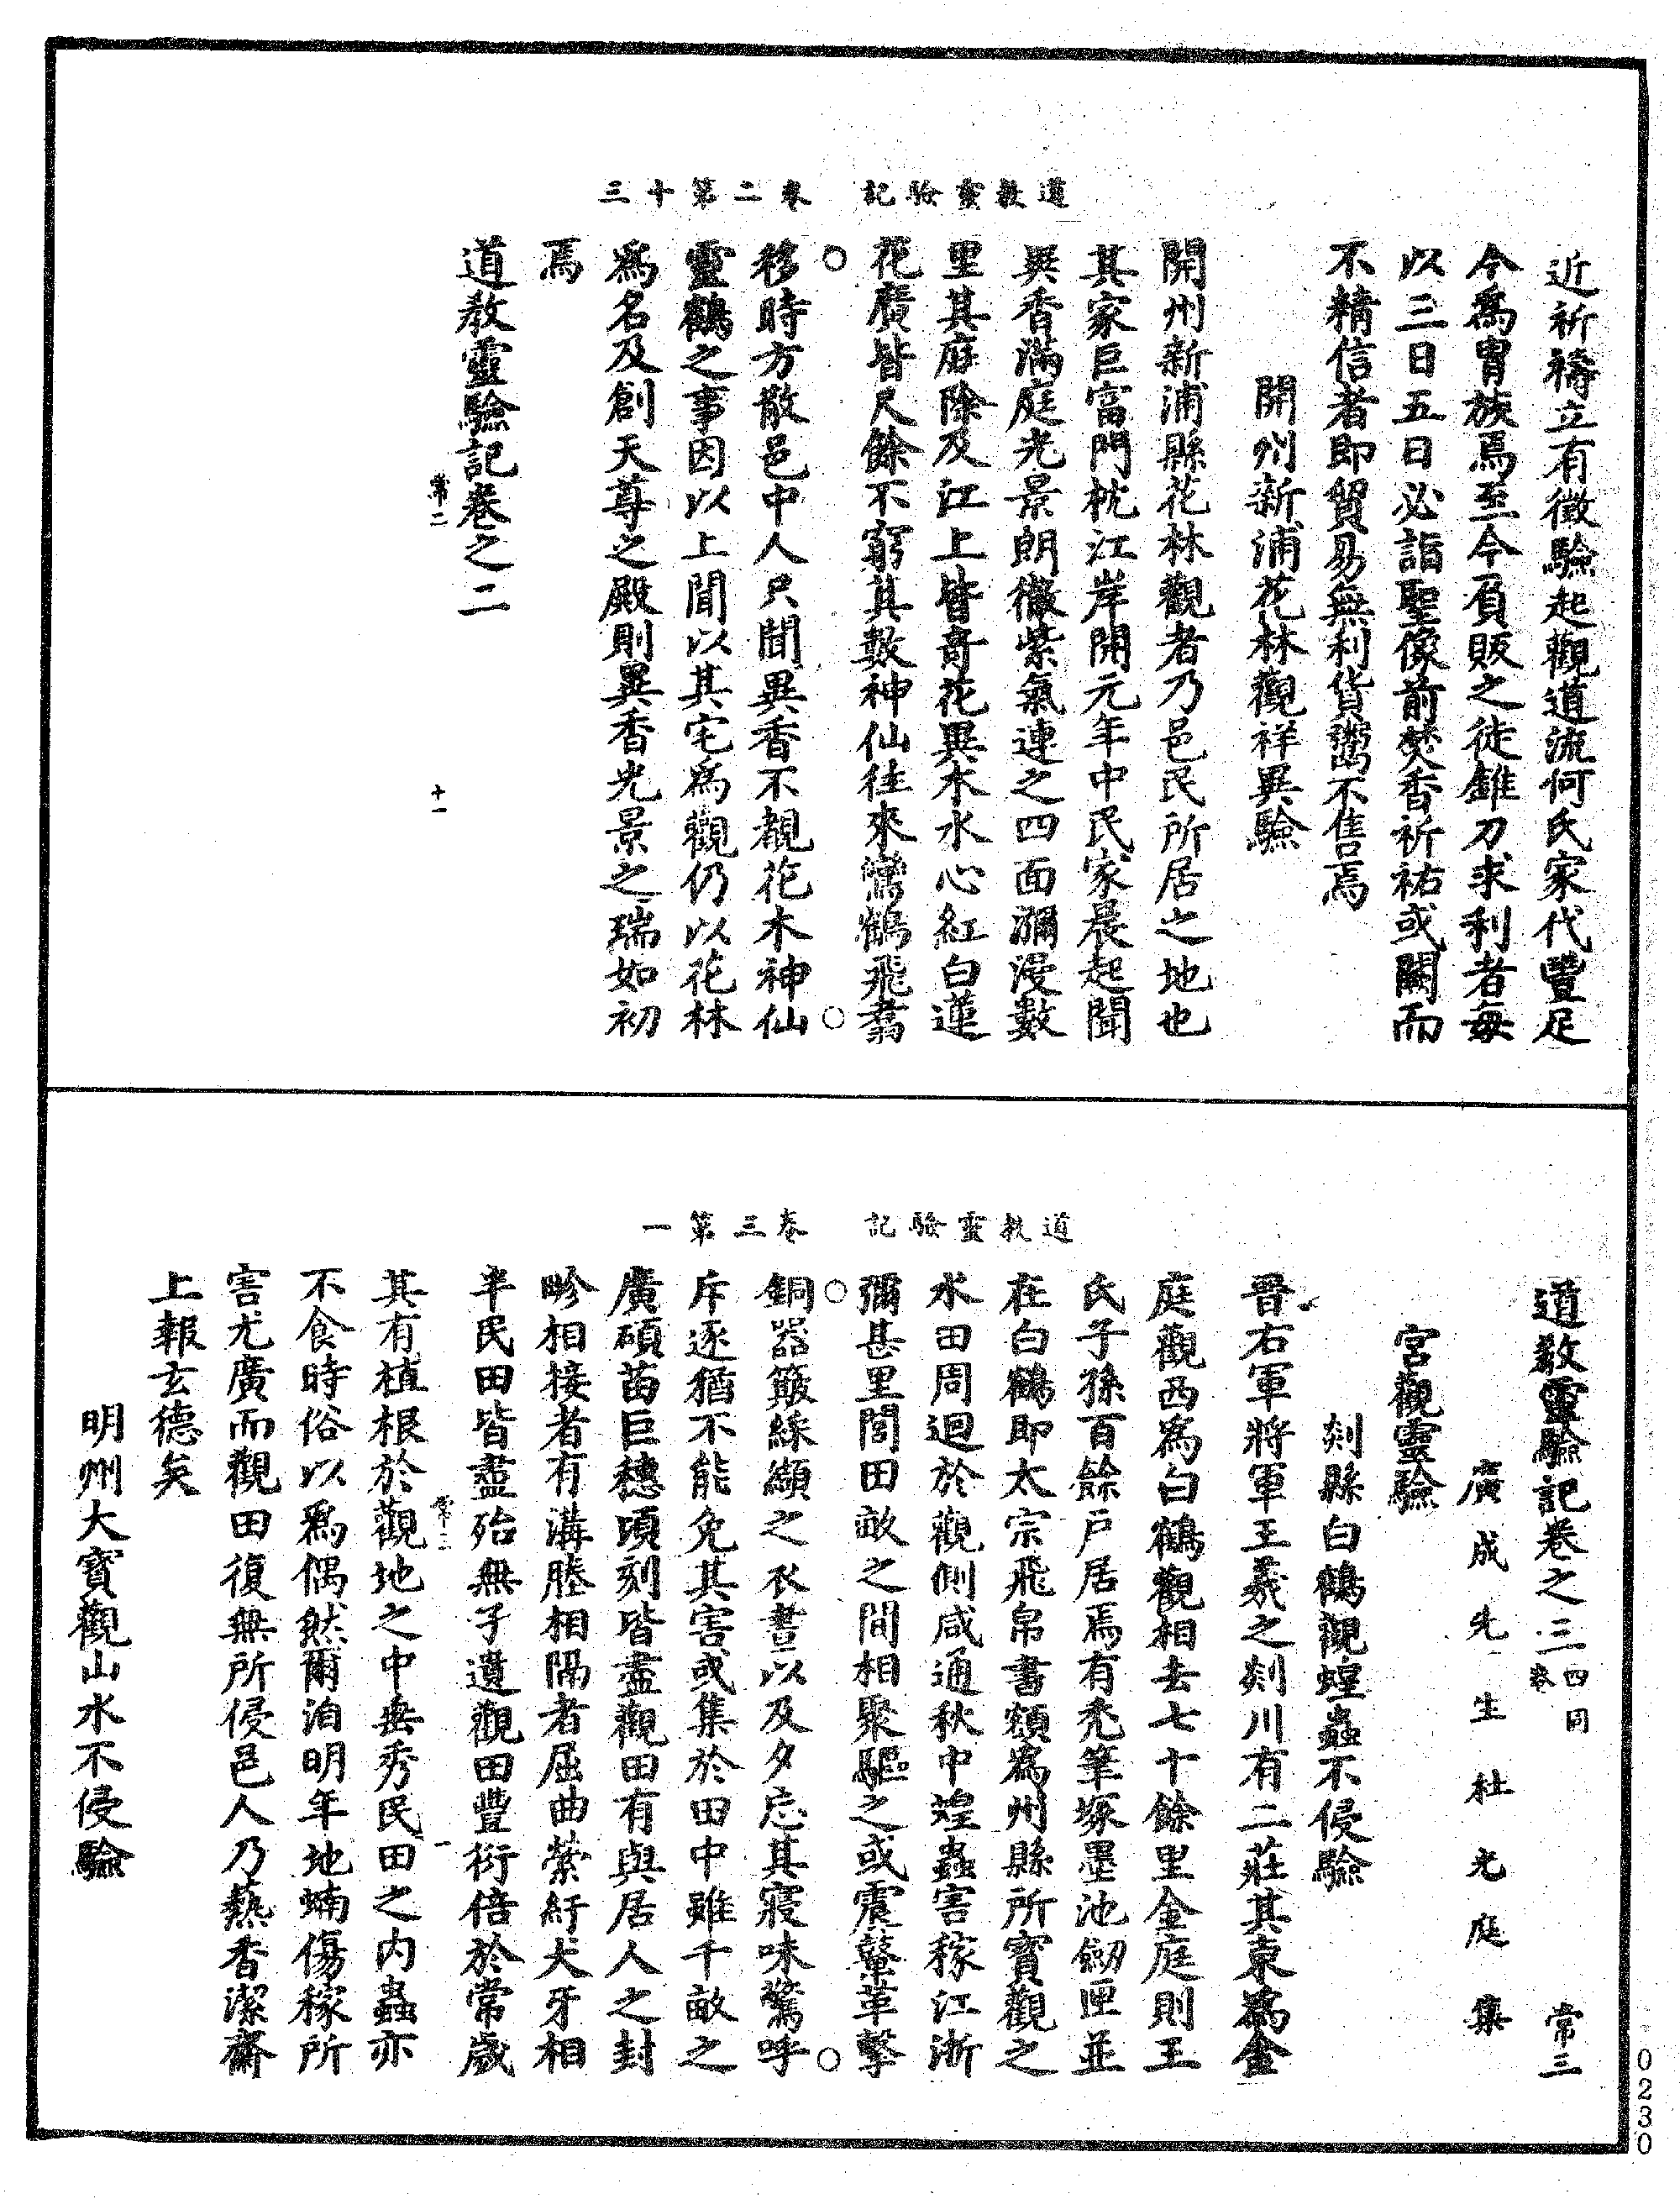 道教靈驗記　卷二第十三
近祈禱立有徵驗起觀道流何氏家代豐足
今為胄族焉至今負販之徒錐刀求利者每
以三日五日必詣聖像前焚香祈祐或闕而
不精信者即貿易無利貨鬻不售焉
開州新浦花林觀祥異驗
開州新浦縣花林觀者乃邑民所居之地也
其家巨富門枕江岸開元年中民家晨起聞
異香滿庭光景朗徹紫氣連之四面瀰漫數
里其庭除及江上皆奇花異木水心紅白蓮
花廣皆尺餘不窮其數神仙往來鸞鶴飛翥
移時方散邑中人只聞異香不覩花木神仙
靈鶴之事因以上聞以其宅為觀仍以花林
為名及創天尊之殿則異香光景之瑞如初
焉
常二　十一
道教靈驗記卷之二
道教靈驗記　卷三第一
道教靈驗記卷之三　四同卷　常三
廣成先生杜光庭集
宮觀靈驗
剡縣白鶴觀蝗蟲不侵驗
晉右軍將軍王羲之剡川有二莊其東為金
庭觀西為白鶴觀相去七十餘里金庭則王
氏子孫百餘戶居焉有禿筆塚墨池劒匣並
在白鶴即太宗飛帛書額為州縣所寶觀之
水田周迴於觀側咸通秋中蝗蟲害稼江浙
彌甚里閭田畝之間相聚驅之或震鼙革擊
銅器簸綵纈之衣晝以及夕忘其寢味驚呼
斥逐猶不能免其害或集於田中雖千畝之
廣碩苗巨穗頃刻皆盡觀田有與居人之封
畛相接者有溝塍相隔者屈曲縈紆犬牙相
半民田皆盡殆無子遺觀田豐衍倍於常歲
常三　一
其有植根於觀地之中垂秀民田之內蟲亦
不食時俗以為偶然爾洎明年地蝻傷稼所
害尤廣而觀田復無所侵邑人乃爇香潔齋
上報玄德矣
明州大寶觀山水不侵驗
0230